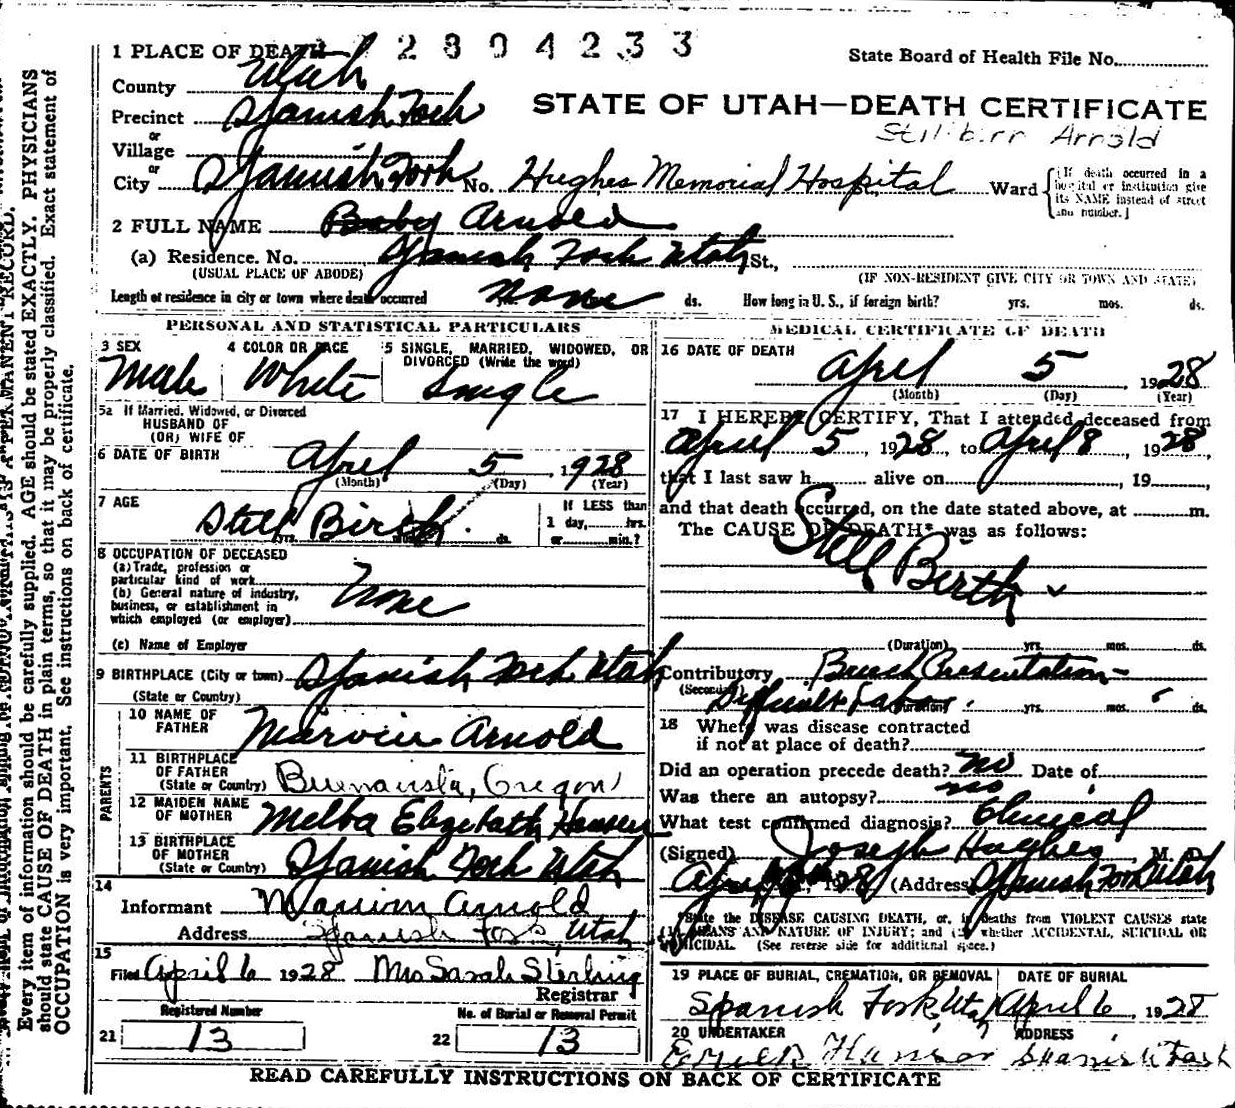 2804233
1 PLACE OF DEATH
State Board of Health File No.
County Utah
STATE OF UTAH—DEATH CERTIFICATE
Precinct Spanish Fork
Stillbirr Arnold
or
Village
or
City Spanish Fork No. Hughes Memorial Hospital St., Ward (If death occurred in a hospital or institution give its NAME instead of street and number.)
2 FULL NAME Baby Arnold
(a) Residence. No. Spanish Fork Utah St.,
(USUAL PLACE OF ABODE) (IF NON-RESIDENT GIVE CITY OR TOWN AND STATE)
Length of residence in city or town where death occurred None ds. How long in U. S., if foreign birth? yrs. mos. ds.
PERSONAL AND STATISTICAL PARTICULARS
3 SEX 4 COLOR OR RACE 5 SINGLE, MARRIED, WIDOWED, OR
DIVORCED (Write the word)
Male White Single
5a If Married, Widowed, or Divorced
HUSBAND OF
(OR) WIFE OF
6 DATE OF BIRTH April 5, 1928
(Month) (Day) (Year)
7 AGE If LESS than
Still Birth yrs. ds. 1 day, hrs.
or min.?
8 OCCUPATION OF DECEASED
(a) Trade, profession or
particular kind of work
(b) General nature of industry,
business, or establishment in
which employed (or employer) None
(c) Name of Employer
9 BIRTHPLACE (City or town) Spanish Fork Utah
(State or Country)
PARENTS
10 NAME OF
FATHER Marvin Arnold
11 BIRTHPLACE
OF FATHER
(State or Country) Buenavista, Oregon
12 MAIDEN NAME
OF MOTHER Melba Elizabeth Hansen
13 BIRTHPLACE
OF MOTHER
(State or Country) Spanish Fork Utah
14
Informant Marvin Arnold
Address Spanish Fork, Utah
15
Filed April 6 1928 Mrs Sarah Sterling
Registrar
Registered Number No. of Burial or Removal Permit
21 13 22 13
MEDICAL CERTIFICATE OF DEATH
16 DATE OF DEATH
April 5, 1928
(Month) (Day) (Year)
17 I HEREBY CERTIFY, That I attended deceased from
April 5, 1928, to April 8, 1928,
that I last saw h alive on , 19 ,
and that death occurred, on the date stated above, at m.
The CAUSE OF DEATH* was as follows:
Still Birth
(Duration) yrs. mos. ds.
Contributory Breech Presentation -
(Secondary) Difficult Labor (Duration) yrs. mos. ds.
18 Where was disease contracted
if not at place of death?
Did an operation precede death? no Date of
Was there an autopsy? no
What test confirmed diagnosis? Clinical
(Signed) Joseph Hughes M. D.
April 1928 (Address) Spanish Fork Utah
*State the DISEASE CAUSING DEATH, or, in deaths from VIOLENT CAUSES state
(1) MEANS AND NATURE OF INJURY; and (2) whether ACCIDENTAL, SUICIDAL OR
HOMICIDAL. (See reverse side for additional space.)
19 PLACE OF BURIAL, CREMATION, OR REMOVAL DATE OF BURIAL
Spanish Fork, Utah April 6, 1928
20 UNDERTAKER ADDRESS
Hanson Spanish Fork
READ CAREFULLY INSTRUCTIONS ON BACK OF CERTIFICATE
Every item of information should be carefully supplied. AGE should be stated EXACTLY. PHYSICIANS
should state CAUSE OF DEATH in plain terms, so that it may be properly classified. Exact statement of
OCCUPATION is very important. See instructions on back of certificate.